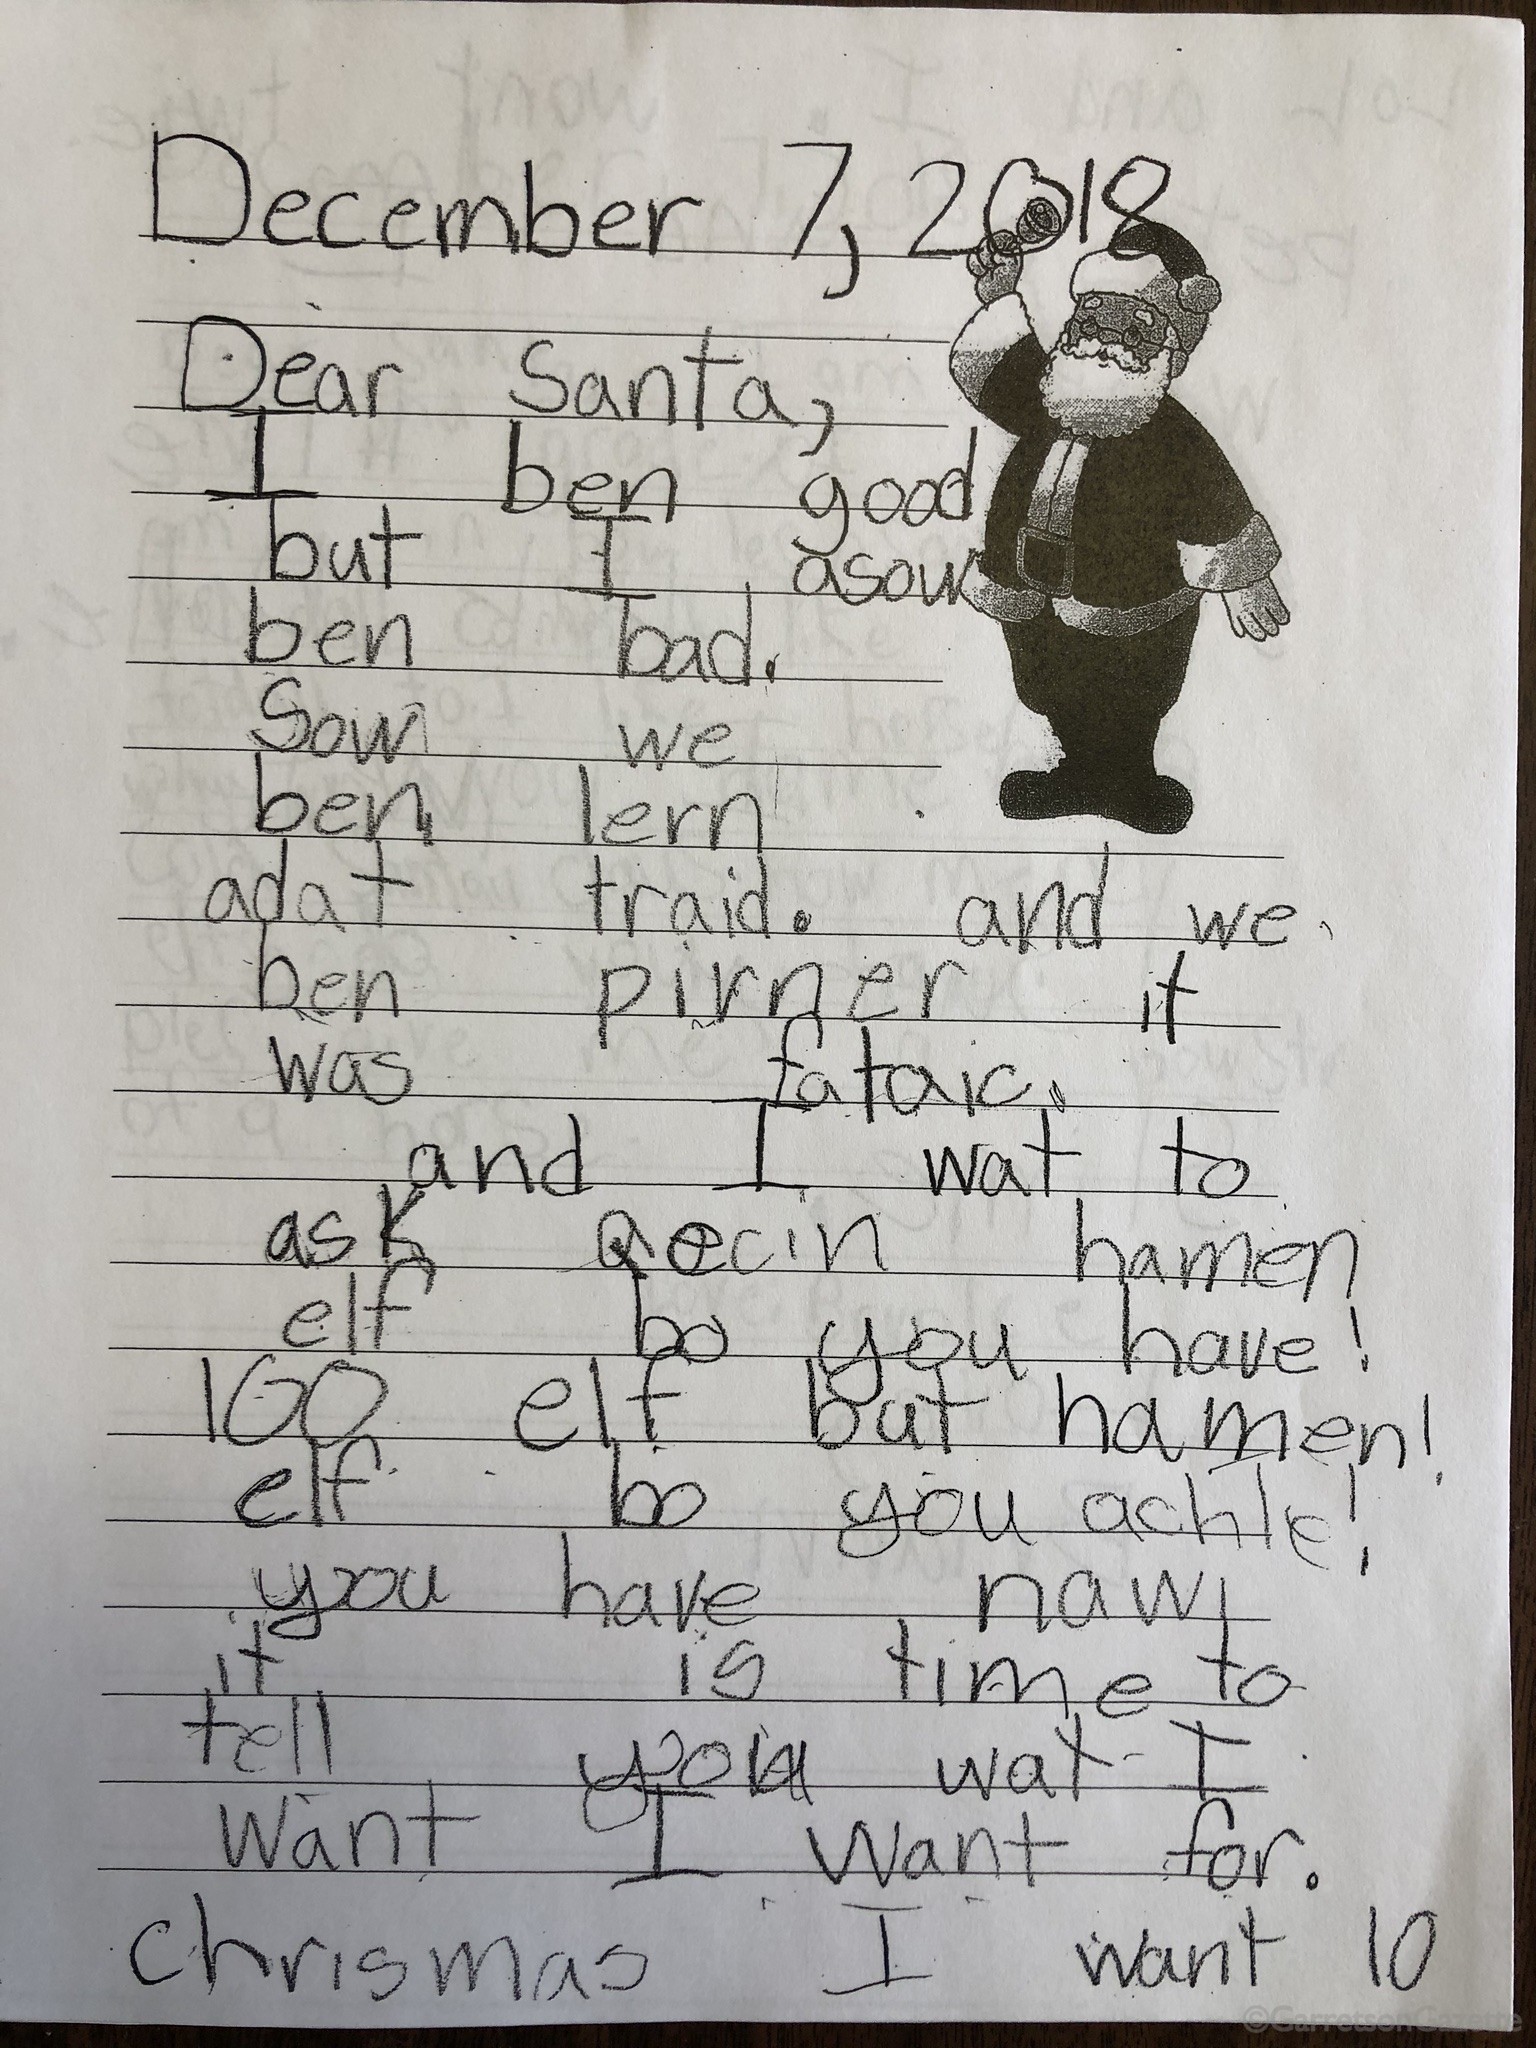 December 7, 2018
Dear Santa,
I ben good
but I asow
ben bad.
Sow we
ben lern
adat traid. and we
ben pirner it
was fataic.
and I wat to
ask hamen
elf bo you have!
100 elf but hamen!
elf bo you achle!
you have naw
it is time to
tell you wat I
want I want for.
chrismas I want 10
©GarretsonGazette